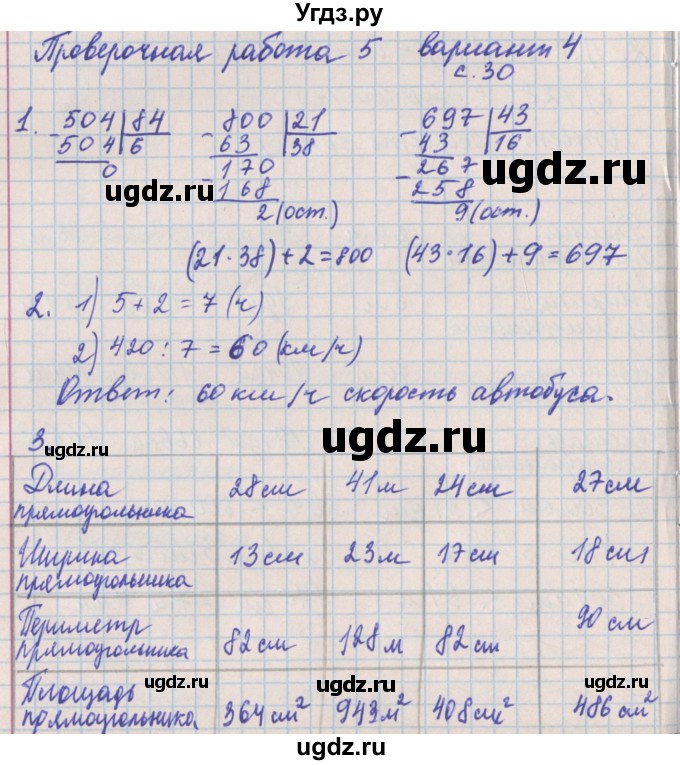 Угдз.ру
Проверочная работа 5 вариант 4
с. 30
1. - 504 | 84 - 800 | 21 - 697 | 43
504 | 6 63 | 38 43 | 16
0 - 170 - 267
168 258
2 (ост.) 9 (ост.)
(21·38)+2=800 (43·16)+9=697
2. 1) 5+2=7 (ч)
2) 420:7=60 (км/ч)
Ответ: 60 км/ч скорость автобуса.
3
Длина прямоугольника 28 см 41 м 24 см 27 см
Ширина прямоугольника 13 см 23 м 17 см 18 см
Периметр прямоугольника 82 см 128 м 82 см 90 см
Площадь прямоугольника 364 см² 943 м² 408 см² 486 см²
ugdz.ru
ugdz.ru
ugdz.ru
ugdz.ru
ugdz.ru
ugdz.ru
ugdz.ru
ugdz.ru
ugdz.ru
ugdz.ru
ugdz.ru